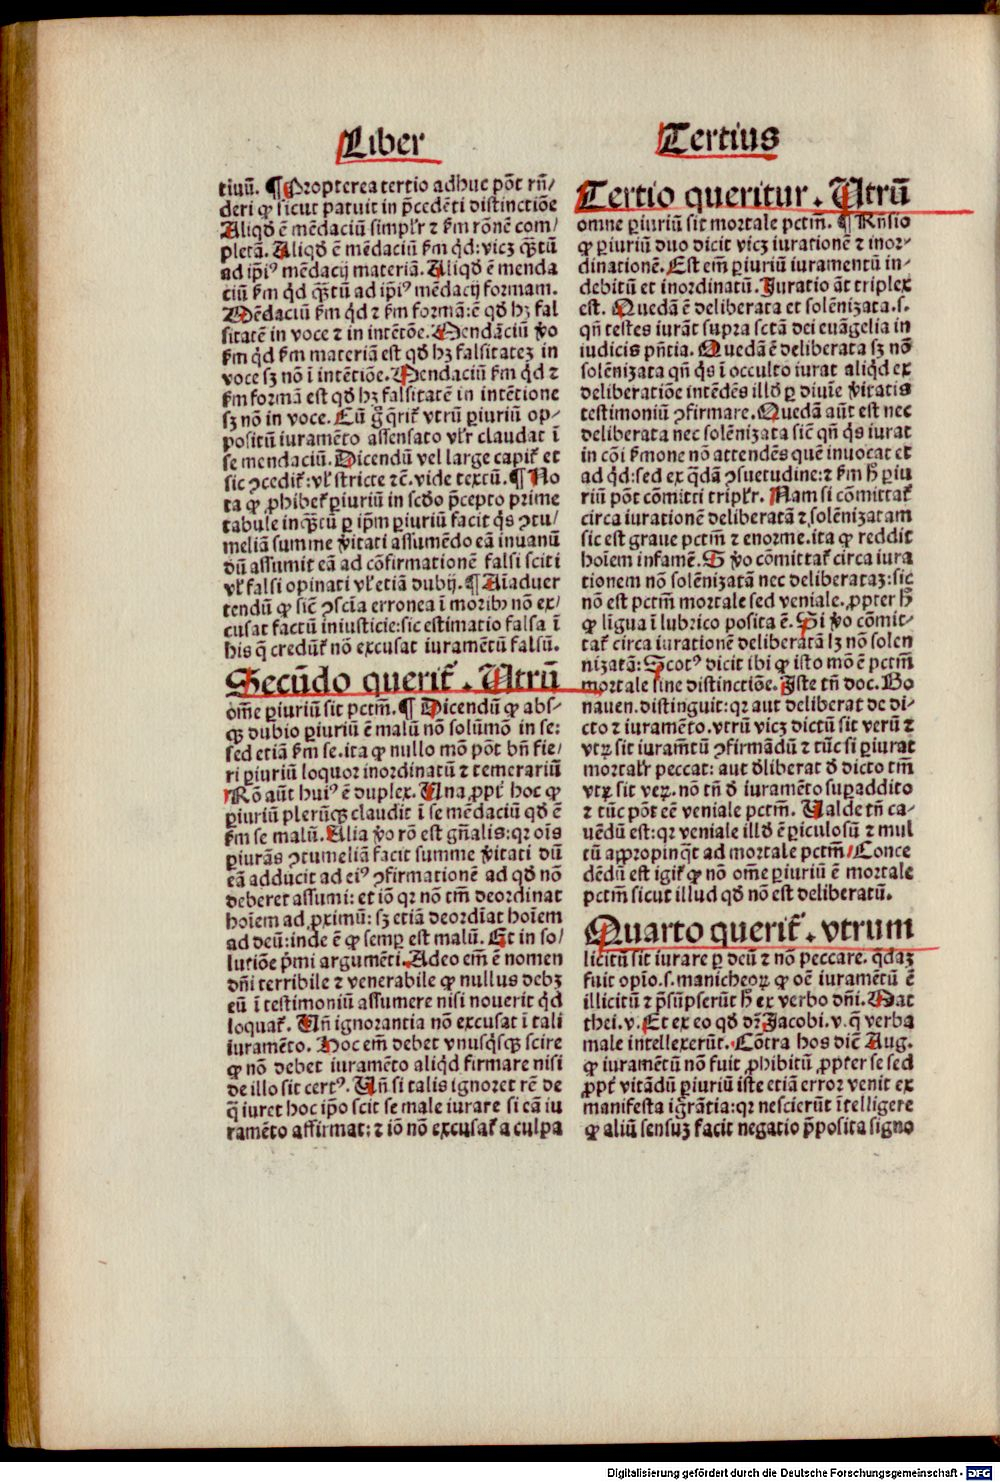 Liber
Tertius
tiuū. ¶ Propterea tertio adhuc pōt rn̄/
deri ꝙ sicut patuit in p̄cedēti distinctiōe
Aliqd̄ ē mēdaciū simplr̄ ⁊ ẜm rōnē com/
pletā. Aliqd̄ ē mēdaciū ẜm qd̄: vicꝫ qᷓꝫtū
ad ip̄iꝰ mēdacij materiā. Aliqd̄ ē menda
ciū ẜm qd̄ qᷓꝫtū ad ip̄iꝰ mēdacij formam.
Mēdaciū ẜm qd̄ ⁊ ẜm formā: ē qd̄ hꝫ fal
sitatē in voce ⁊ in intētōe. Mendāciū v̄o
ẜm qd̄ ẜm materiā est qd̄ hꝫ falsitateꝫ in
voce sꝫ nō ī intētiōe. Mendaciū ẜm qd̄ ⁊
ẜm formā est qd̄ hꝫ falsitatē in intētione
sꝫ nō in voce. Cū g̊ q̄rit᷑ vtrū ꝑiuriū op-
positū iuramēto assensato vlr̄ claudat ī
se mendaciū. Dicendū vel large capit᷑ et
sic ꝯcedit᷑: vl̓ stricte ⁊c̄. vide textū. ¶ No
ta ꝙ ꝓhibet᷑ ꝑiuriū in scd̄o p̄cepto prime
tabule inqᷓꝫtū ꝑ ip̄m ꝑiuriū facit q̇s ꝯtu/
meliā summe v̄itati assumēdo eā inuanū
dū assumit eā ad cōfirmationē falsi sciti
vl̓ falsi opinati vl̓ etiā dubij. ¶ Aīaduer
tendū ꝙ sicē ꝯscīa erronea ī moribꝫ nō ex/
cusat factū iniusticie: sic estimatio falsa ī
his q̄ credūt᷑ nō excusat iuramētū falsū.
Secūdo querit᷑. Utrū
om̄e ꝑiuriū sit pctm̄. ¶ Dicendū ꝙ abs-
qꝫ dubio ꝑiuriū ē malū nō solūmō in se:
sed etiā ẜm se. ita ꝙ nullo mō pōt bn̄ fie/
ri ꝑiuriū loquor inordinatū ⁊ temerariū
Rō aūt huiꝰ ē duplex. Una ꝓpt᷑ hoc ꝙ
ꝑiuriū plerūqꝫ claudit ī se mēdaciū qd̄ ē
ẜm se malū. Alia v̄o rō est gn̄alis: qꝛ oīs
ꝑiurās ꝯtumeliā facit summe v̄itati dū
eā adducit ad eiꝰ ꝯfirmationē ad qd̄ nō
deberet assumi: et iō qꝛ nō tm̄ deordinat
hoīem ad ꝓximū: sꝫ etiā deordīat hoīem
ad deū: inde ē ꝙ semꝑ est malū. Et in so/
lutiōe p̄mi argumēti. Adeo em̄ ē nomen
dn̄i terribile ⁊ venerabile ꝙ nullus debꝫ
eū ī testimoniū assumere nisi nouerit qd̄
loquat᷑. Un̄ ignorantia nō excusat ī tali
iuramēto. Hoc em̄ debet vnusq̇sqꝫ scire
ꝙ nō debet iuramēto aliqd̄ firmare nisi
de illo sit certꝰ. Un̄ si talis ignoret rē de
q̄ iuret hoc ip̄o scit se male iurare si eā iu
ramēto affirmat: ⁊ iō nō excusat᷑ a culpa
Tertio queritur. Utrū
omne ꝑiuriū sit mortale pctm̄. ¶ Rn̄sio
ꝙ ꝑiuriū duo dicit vicꝫ iurationē ⁊ inor-
dinationē. Est em̄ ꝑiuriū iuramentū in-
debitū et inordinatū. Juratio āt triplex
est. Quedā ē deliberata et solēnizata. s.
qn̄ testes iurāt supra sctā dei euāgelia in
iudicis pn̄tia. Quedā ē deliberata sꝫ nō
solēnizata qn̄ q̇s ī occulto iurat aliqd̄ ex
deliberatiōe intēdēs illd̄ ꝑ diuīe v̄itatis
testimoniū ꝯfirmare. Quedā aūt est nec
deliberata nec solēnizata sicē qn̄ q̇s iurat
in cōi ẜmone nō attendēs quē inuocat et
ad qd̄: sed ex qᷓdā ꝯsuetudine: ⁊ ẜm ħ ꝑiu
riū pōt cōmitti triplr̄. Nam si cōmittat᷑
circa iurationē deliberatā ⁊ solēnizatam
sic est graue pctm̄ ⁊ enorme. ita ꝙ reddit
hoīem infamē. S v̄o cōmittat᷑ circa iura
tionem nō solēnizatā nec deliberataꝫ: sic
nō est pctm̄ mortale sed veniale. ꝓpter ħ
ꝙ līgua ī lubrico posita ē. Si v̄o cōmit-
tat᷑ circa iurationē deliberatā lꝫ nō solen
nizatā: Scotꝰ dicit ibi ꝙ isto mō ē pctm̄
mortale sine distinctiōe. Iste tn̄ doc. Bo
nauen. distinguit: qꝛ aut deliberat de di-
cto ⁊ iuramēto. vtrū vicꝫ dictū sit verū ⁊
vtꝝ sit iuram̄tū ꝯfirmādū ⁊ tūc si ꝑiurat
mortalr̄ peccat: aut d̄liberat d̄ dicto tm̄
vtꝝ sit veꝝ. nō tn̄ d̄ iuramēto suꝑaddito
⁊ tūc pōt eē veniale pctm̄. Ualde tn̄ ca-
uēdū est: qꝛ veniale illd̄ ē ꝑiculosū ⁊ mul
tū aꝓpropinq̄t ad mortale pctm̄ Conce
dēdū est igit᷑ ꝙ nō om̄e ꝑiuriū ē mortale
pctm̄ sicut illud qd̄ nō est deliberatū.
Quarto querit᷑. vtrum
licitū sit iurare ꝑ deū ⁊ nō peccare. qᷓdaꝫ
fuit opio. s. manicheoꝝ ꝙ oē iuramētū ē
illicitū ⁊ p̄sūpserūt ħ ex verbo dn̄i. Mat
thei. v. Et ex eo qd̄ dꝛ̄ Jacobi. v. q̄ verba
male intellexerūt. Cōtra hos dicē Aug.
ꝙ iuramētū nō fuit ꝓhibitū ꝓpter se sed
ꝓpt᷑ vitādū ꝑiuriū iste etiā error venit ex
manifesta igr̄ātia: qꝛ nescierūt ītelligere
ꝙ aliū sensuꝫ facit negatio p̄posita signo
Digitalisierung gefördert durch die Deutsche Forschungsgemeinschaft - DFG